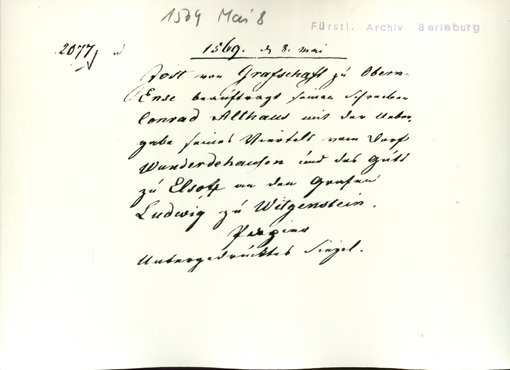 1569 Mai 8
Fürstl. Archiv Berleburg
2077
1569. d 8. Mai
Jost von Grafschaft zu Obern-
Ense beauftragt seinen Schreiber
Conrad Althaus mit der Ueber-
gabe seines Viertels vom Dorf
Wunderdehausen und des Guts
zu Elsoff an den Grafen
Ludwig zu Witgenstein.
Papier
Untergedrücktes Siegel.